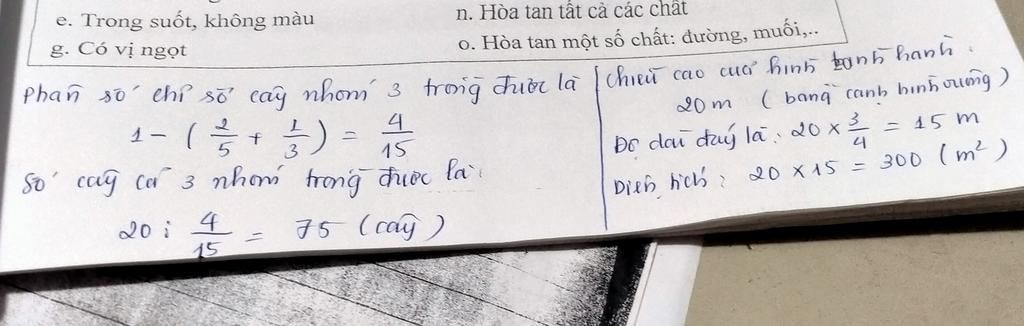 e. Trong suốt, không màu
g. Có vị ngọt
n. Hòa tan tất cả các chất
o. Hòa tan một số chất: đường, muối,..
Phân số chỉ số cây nhóm 3 trồng được là
1 - ( 2/5 + 1/3 ) = 4/15
Số cây cả 3 nhóm trồng được là:
20 : 4/15 = 75 (cây)
Chiều cao của hình bình hành:
20 m ( bằng cạnh hình vuông )
Độ dài đáy là: 20 × 3/4 = 15 m
Diện tích: 20 × 15 = 300 (m²)